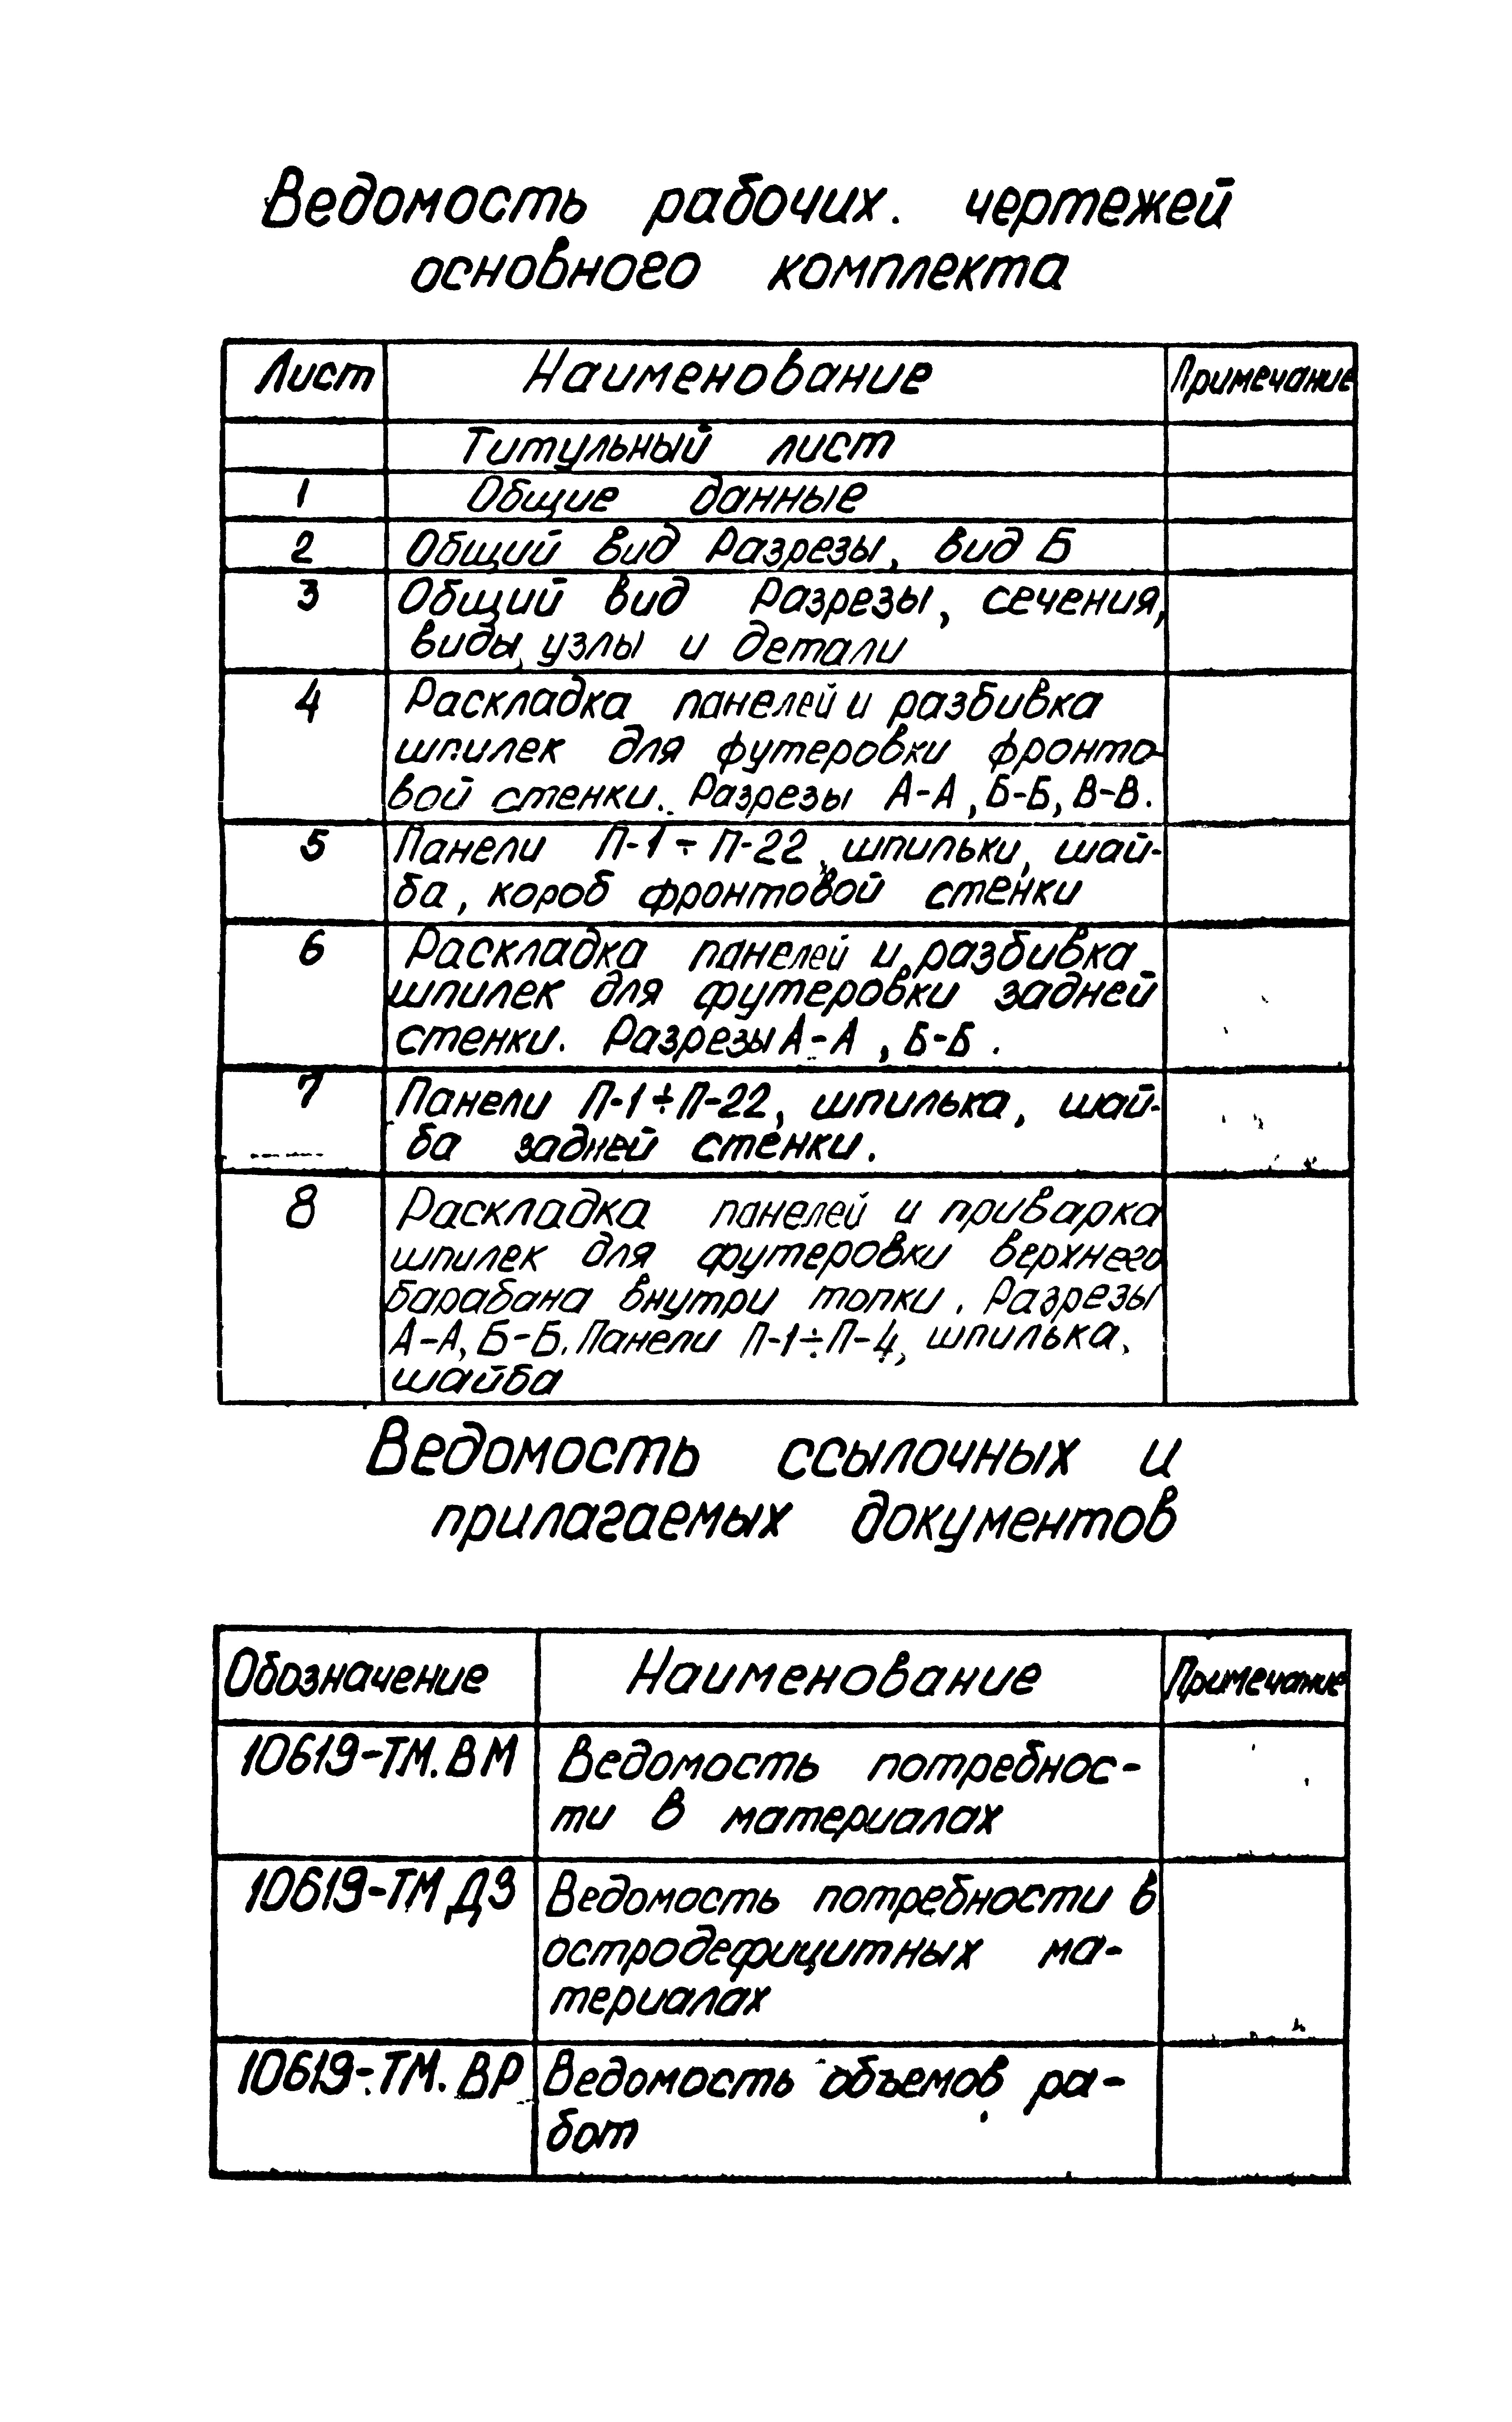 Ведомость рабочих. чертежей
основного комплекта
Лист Наименование Примечание
Титульный лист
1 Общие данные
2 Общий вид Разрезы, вид Б
3 Общий вид Разрезы, сечения,
виды, узлы и детали
4 Раскладка панелей и разбивка
шпилек для футеровки фронто-
вой стенки. Разрезы А-А, Б-Б, В-В.
5 Панели П-1÷П-22, шпильки, шай-
ба, короб фронтовой стенки
6 Раскладка панелей и разбивка
шпилек для футеровки задней
стенки. Разрезы А-А, Б-Б.
7 Панели П-1÷П-22, шпилька, шай-
ба задней стенки.
8 Раскладка панелей и приварка
шпилек для футеровки верхнего
барабана внутри топки. Разрезы
А-А, Б-Б. Панели П-1÷П-4, шпилька,
шайба
Ведомость ссылочных и
прилагаемых документов
Обозначение Наименование Примечание
10619-ТМ.ВМ Ведомость потребнос-
ти в материалах
10619-ТМ ДЗ Ведомость потребности в
остродефицитных ма-
териалах
10619-ТМ.ВР Ведомость объемов ра-
бот